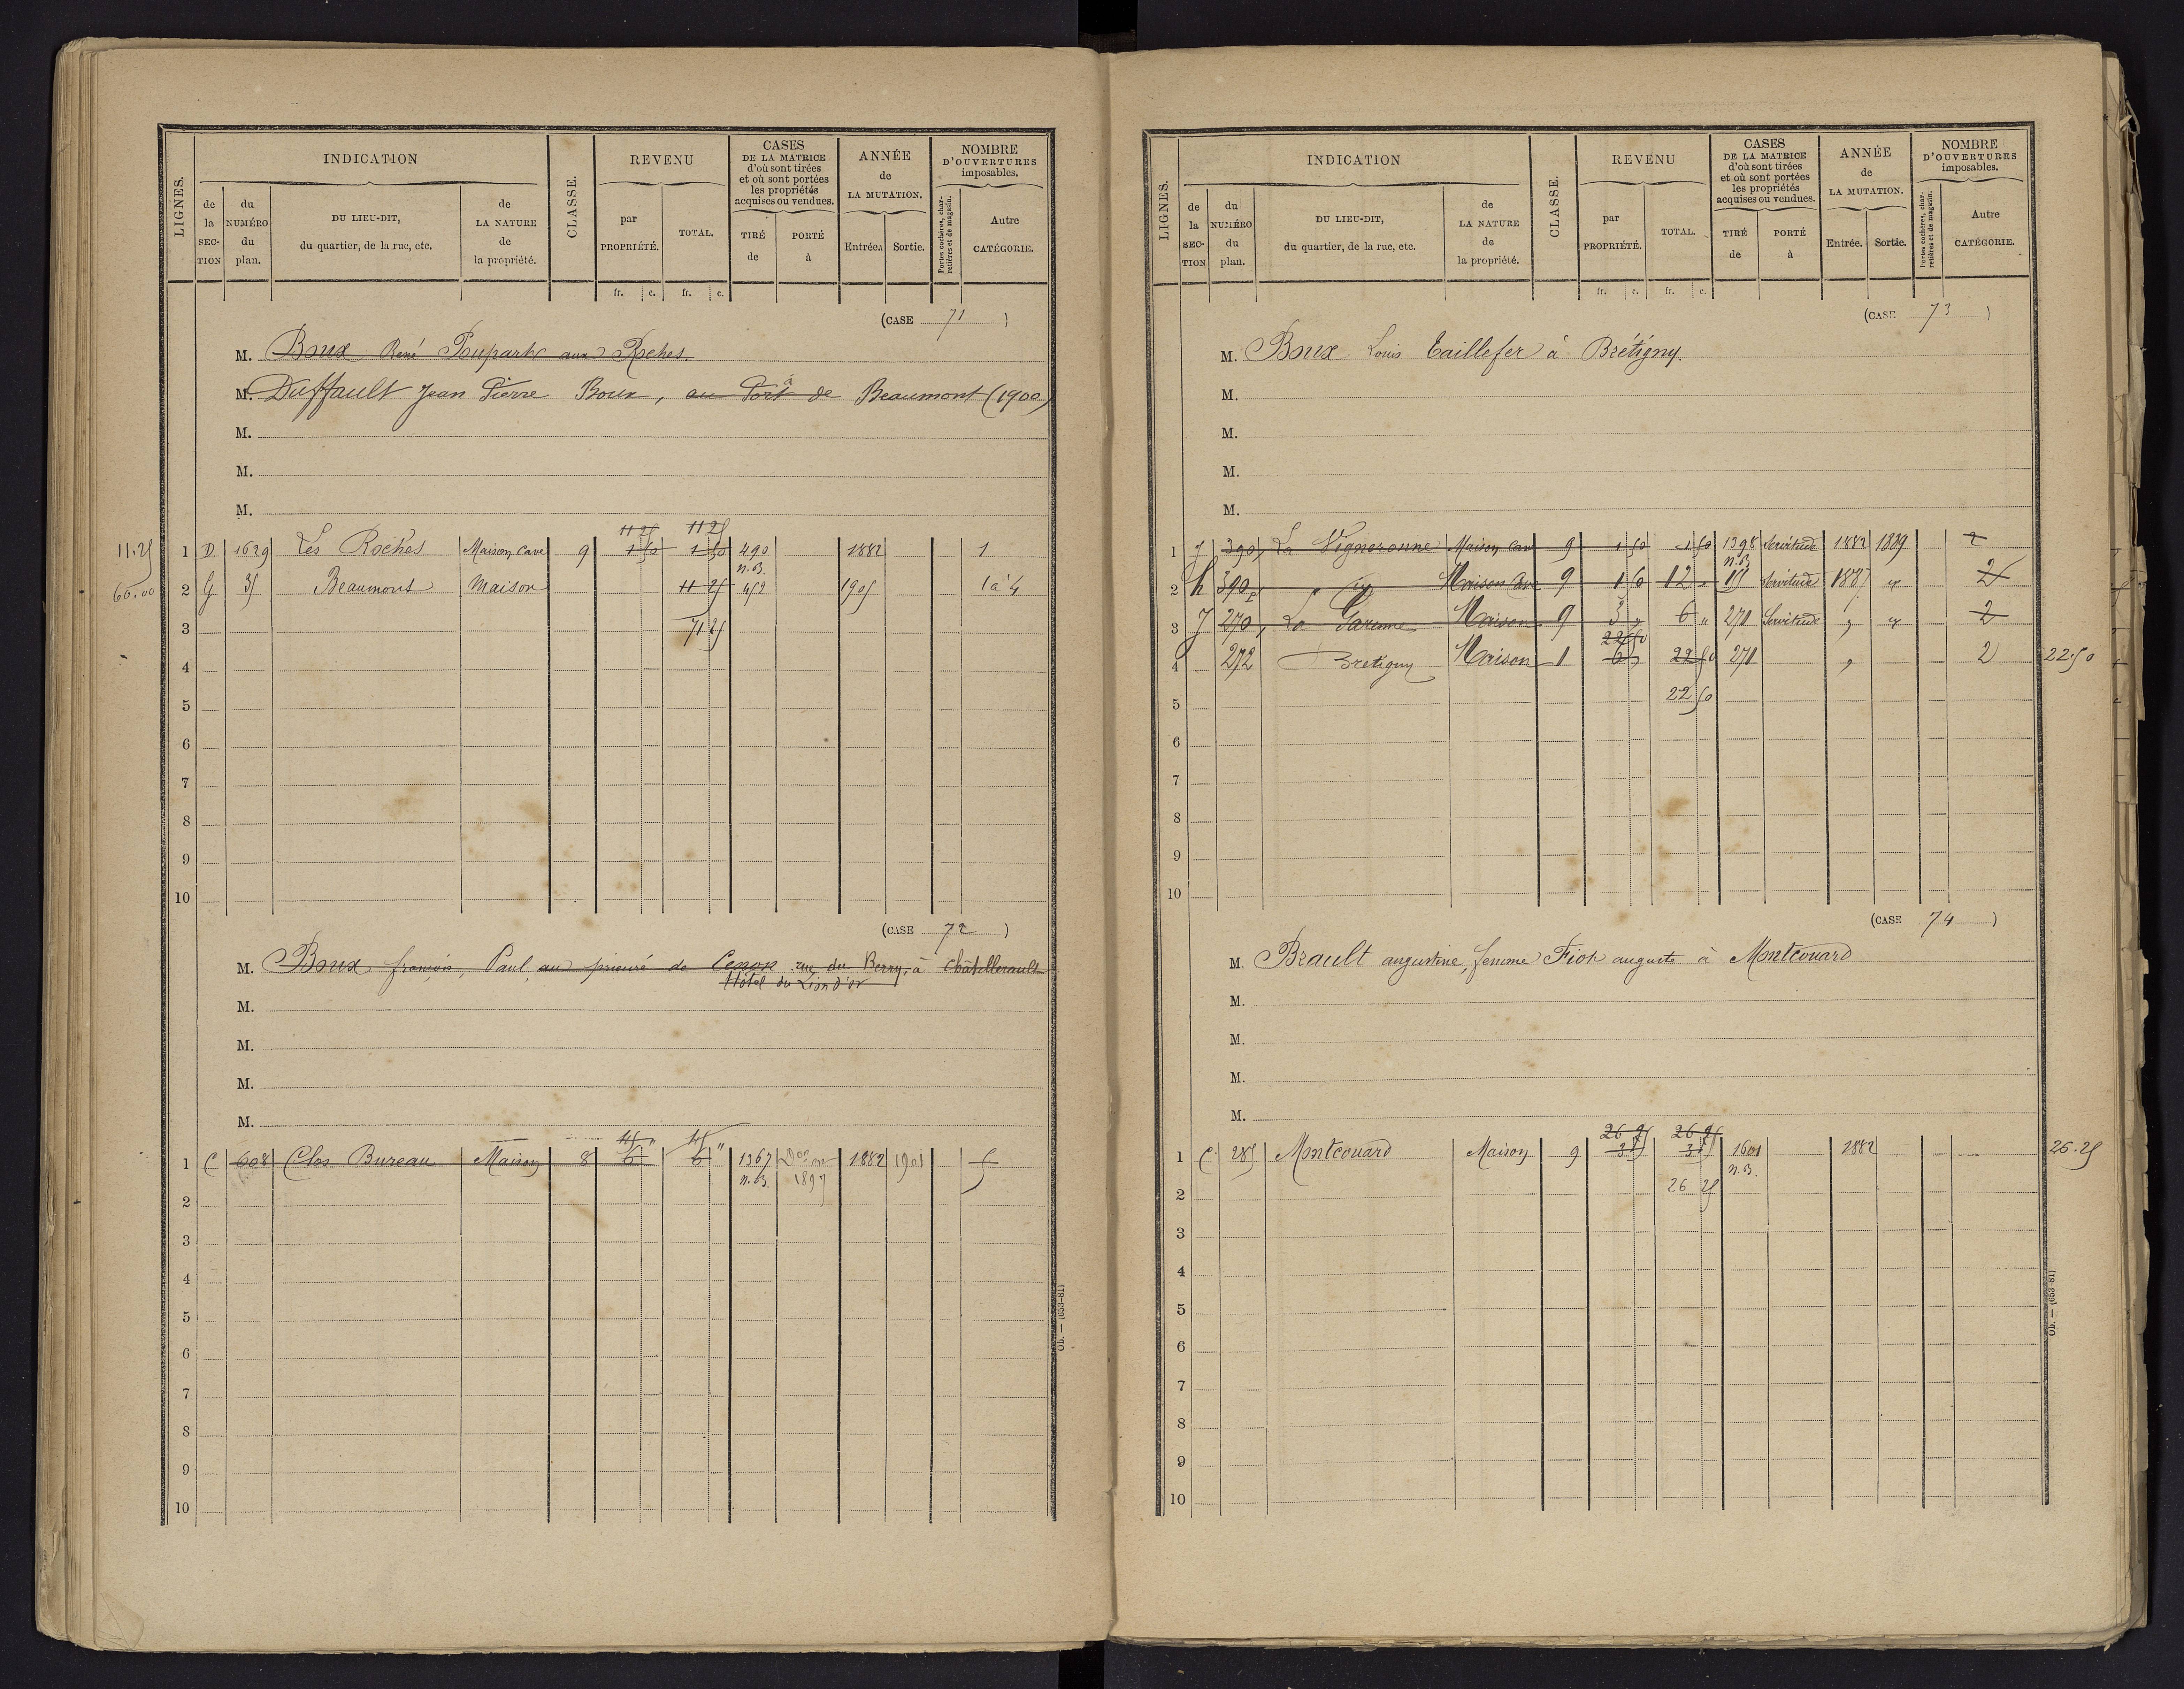 LIGNES.
INDICATION
de la SECTION
du NUMÉRO du plan.
DU LIEU-DIT, du quartier, de la rue, etc.
de LA NATURE de la propriété.
CLASSE.
REVENU
par PROPRIÉTÉ.
TOTAL.
CASES DE LA MATRICE d'où sont tirées et où sont portées les propriétés acquises ou vendues.
TIRÉ de
PORTÉ à
ANNÉE de LA MUTATION.
Entrée.
Sortie.
NOMBRE D'OUVERTURES imposables.
Portes cochères, charretières et de magasin.
Autre CATÉGORIE.
fr. c. fr. c.
(CASE 71)
M. Boux René Poupart aux Roches.
M. Duffault Jean Pierre Boux, au Port de à Beaumont (1900)
M.
M.
M.
11 25 11 25
11.25 1 D 1629 Les Roches Maison Cave 9 1 50 1 50 490 1882 1
n.B.
60.00 2 G 35 Beaumont Maison 11 25 452 1905 1 à 4
3 71 25
4
5
6
7
8
9
10
(CASE 72)
M. Boux françois, Paul, au prieuré de Cenon rue du Berry, à Chatellerault
Hôtel du Lion d'or
M.
M.
M.
M.
45 " 45 "
1 C 608 Clos Bureau Maison 8 6 6 1367 1882 1901 5
n.B. 1897
2
3
4
5
6
7
8
9
10
Ob. — (653-81)
LIGNES.
INDICATION
de la SECTION
du NUMÉRO du plan.
DU LIEU-DIT, du quartier, de la rue, etc.
de LA NATURE de la propriété.
CLASSE.
REVENU
par PROPRIÉTÉ.
TOTAL.
CASES DE LA MATRICE d'où sont tirées et où sont portées les propriétés acquises ou vendues.
TIRÉ de
PORTÉ à
ANNÉE de LA MUTATION.
Entrée.
Sortie.
NOMBRE D'OUVERTURES imposables.
Portes cochères, charretières et de magasin.
Autre CATÉGORIE.
fr. c. fr. c.
(CASE 73)
M. Boux Louis Taillefer à Brétigny.
M.
M.
M.
M.
1 J 390 La Vigneronne Maison Cave 9 1 50 1 50 1398 Servitude 1882 1889 2
n.B.
2 h 390 p Maison Cave 9 1 50 12 " Servitude 1887 2
3 J 270 La Garenne Maison 9 3 " 6 " 270 Servitude " 2
22 50
4 272 Bretigny Maison 1 6 22 50 270 " 2 22.50
5 22 50
6
7
8
9
10
(CASE 74)
M. Brault augustine, femme Fiot auguste à Montcouard
M.
M.
M.
M.
26 25 26 25
1 C 285 Montcouard Maison 9 3 3 1601 1882 26.25
n.B.
2 26 25
3
4
5
6
7
8
9
10
Ob. — (653-81)